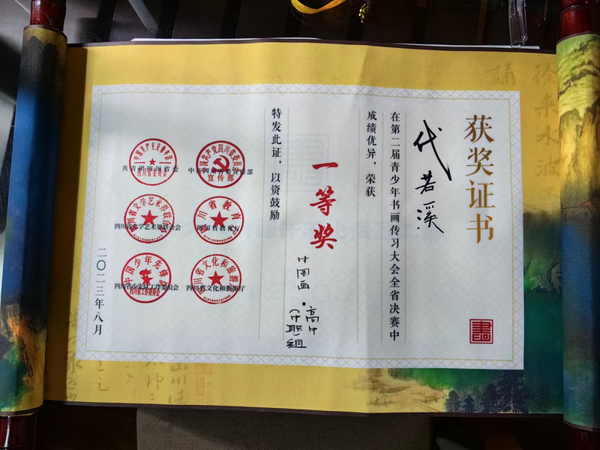 获奖证书
代若溪
在第二届青少年书画传习大会全省决赛中
成绩优异，荣获
一等奖
中国画·高中
（中职）组
特发此证，以资鼓励
共青团四川省委
中共四川省委宣传部
四川省文学艺术界联合会
四川省教育厅
四川省文化和旅游厅
二〇二三年八月